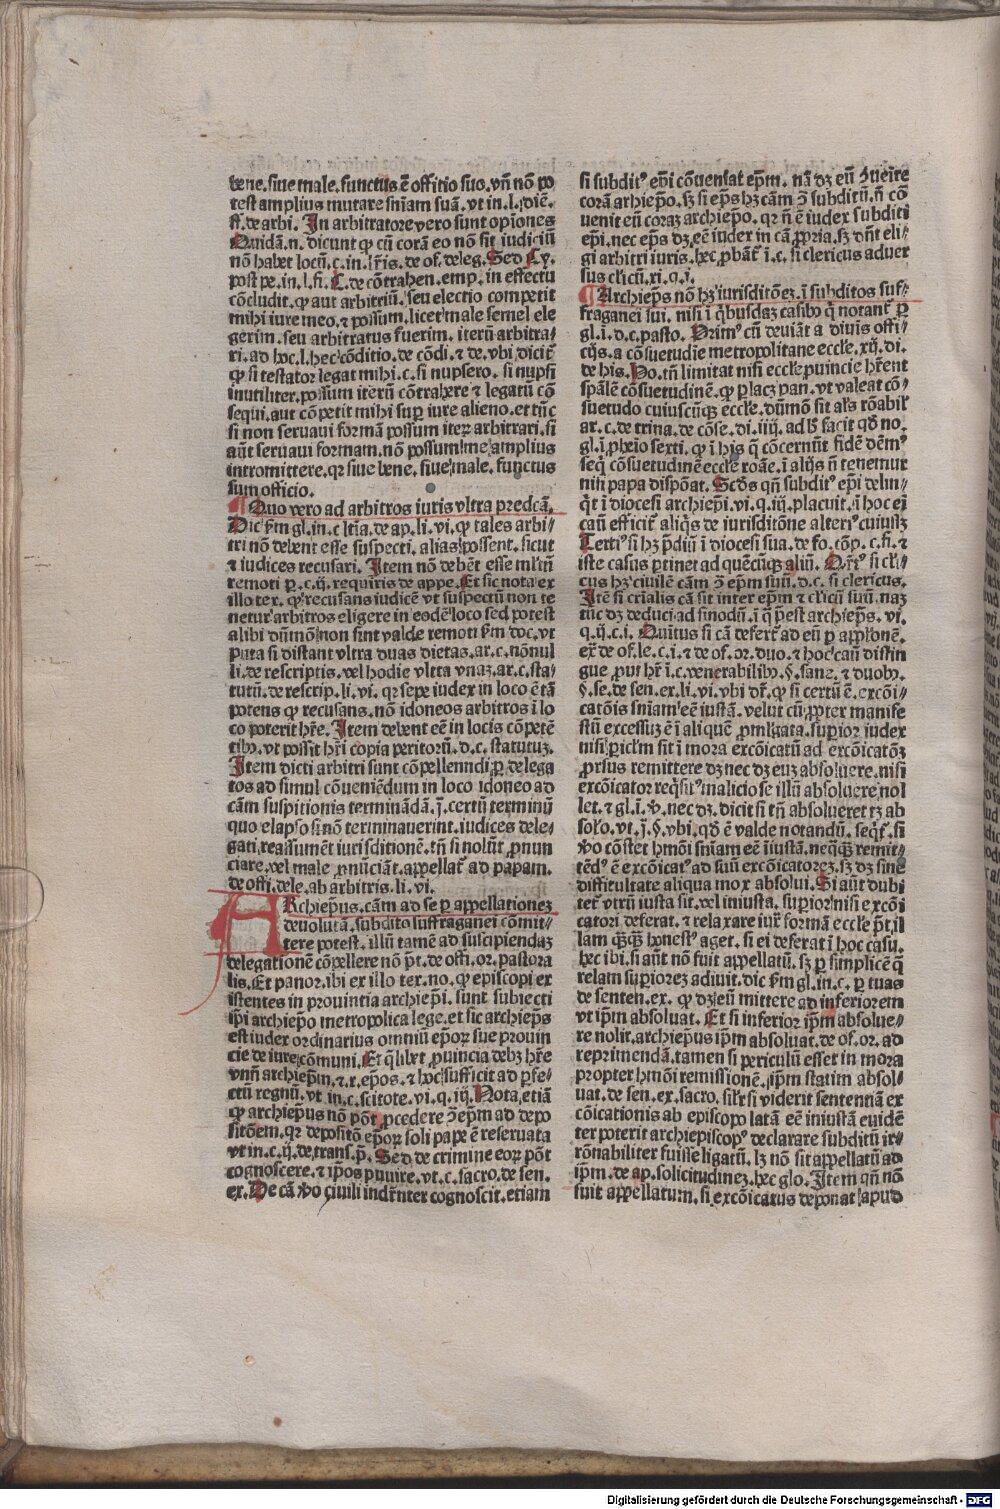 bene.siue male.functus ē offitio suo.vn̄ nō po
test amplius mutare sn̄iam suā.vt in.l.diē.
ff.de arbi. In arbitratore vero sunt opiones
Quidā.n.dicunt ꝙ cū corā eo nō sit iudiciū
nō habet locū.c.in.lr̄is.de of.deleg. Sed Cy.
post pe.in.l.fi. C.de cōtrahen.emp.in effectu
cōcludit.ꝙ aut arbitriū.seu electio competit
mihi iure meo.⁊ possum.licet male semel ele
gerim.seu arbitratus fuerim.iterū arbitra-
ri.ad hoc.l.hec cōditio.de cōdi.⁊ de.vbi dicit̄
ꝙ si testator legat mihi.c.si nupsero.si nupsi
inutiliter.possum iterū cōtrahere ⁊ legatū cō
sequi.aut cōpetit mihi suꝑ iure alieno.et tūc
si non seruaui formā possum iteꝝ arbitrari.si
aūt seruaui formam.nō possum me amplius
intromittere.qꝛ siue bene.siue male.functus
sum officio.
Quo vero ad arbitros iuris vltra predcā.
Dic ẜm gl.in.c ltīa.de ap.li.vi.ꝙ tales arbi-
tri nō debent esse suspecti.alias possent.sicut
⁊ iudices recusari. Item nō debēt esse mltm̄
remoti ꝑ.c.ij.requiris de appe. Et sic nota ex
illo tex.ꝙ recusans iudicē vt suspectū non te
netur arbitros eligere in eodē loco sed potest
alibi dūmō non sint valde remoti ẜm doc.vt
puta si distant vltra duas dietas.ar.c.nōnul
li.de rescriptis.vel hodie vltra vnaꝫ.ar.c.sta-
tutū.de rescrip.li.vi.qꝛ sepe iudex in loco ē tā
potens ꝙ recusans.nō idoneos arbitros ī lo
co poterit hr̄e. Item debent eē in locis cōpetē
tibꝰ.vt possit hr̄i copia peritorū.d.c.statutuꝫ.
Item dicti arbitri sunt cōpellenndi ꝑ delega
tos ad simul cōueniēdum in loco idoneo ad
cām suspitionis terminādā.j.certū terminū
quo elapso si nō terminauerint.iudices dele-
gati.reassumēt iurisditionē.tn̄ si nolūt ꝓnun
ciare.vel male ꝓnūciāt.appellat̄ ad papam.
de offi.dele.ab arbitris.li.vi.
ARchiepūs.cām ad se ꝑ appellationeꝫ
deuolutā.subdito suffraganei cōmit-
tere potest.illū tamē ad suscipiendaꝫ
delegationē cōpellere nō pt̄.de offi.or.pastora
lis. Et panor.ibi ex illo tex.no.ꝙ episcopi ex
istentes in prouintia archiep̄i.sunt subiecti
ip̄i archiep̄o metropolica lege.et sic archiep̄s
est iudex ordinarius omniū ep̄oꝝ sue prouin
cie de iure cōmuni. Et q̄libet ꝓuincia debꝫ hr̄e
vnū archiep̄m.⁊.x.ep̄os.⁊ hoc sufficit ad ꝑfe-
ctū regnū.vt in.c.scitote.vi.q.iij. Nota.etiā
ꝙ archiep̄us nō pōt ꝓcedere ꝯ ep̄m ad depo
sitōem.qꝛ depositō ep̄oꝝ soli pape ē reseruata
vt in.c.ij.de trans.p̄. Sed de crimine eoꝝ pōt
cognoscere.⁊ ip̄os punire.vt.c.sacro.de sen.
ex. De cā vo ciuili indr̄nter cognoscit.etiam
si subditꝰ ep̄i cōueniat ep̄m.nā dꝫ eū ꝯuēire
corā archiep̄o.sꝫ si ep̄s hꝫ cām ꝯ subditū.n̄ cō
uenit eū coraꝫ archiep̄o.qꝛ n̄ ē iudex subditi
ep̄i.nec ep̄s dꝫ eē iudex in cā ꝓpria.sꝫ dn̄t eli-
gi arbitri iuris.hec ꝓbāt̄ ī.c.si clericus aduer
sus cl̄icū.xi.q.i.
Archiep̄s nō hꝫ iurisditōeꝫ.ī subditos suf-
fraganei sui.nisi ī q̄busdaꝫ casibꝰ q̄ notant̄ ꝑ
gl.ī.d.c.pasto. Primꝰ cū deuiāt a diuīs offi-
cijs.a cōsuetudīe metropolitane eccl̄e.xij.di.
de his. Ho.tn̄ limitat nisi eccl̄e ꝓuincie hr̄ent
spālē cōsuetudinē.ꝙ ꝑ lacꝫ pan.vt valeat cō-
suetudo cuiuscūqꝫ eccl̄e.dūmō sit al̄s rōabil̄
ar.c.de trina.de cōse.di.iiij.ad b̄ facit qd̄ no.
gl.ī ꝓhēio sexti.ꝙ ī his q̄ cōcernūt fidē dēmꝰ
seq̄ cōsuetudinē eccl̄e roāe.ī alijs n̄ tenemur
nisi papa dispōat. Scds qn̄ subditꝰ ep̄i delin-
q̄t ī diocesi archiep̄i.vi.q.iij.placuit.qꝛ hoc eī
caū efficit̄ aliq̄s de iurisditōne alteriꝰ cuiuslꝫ
Tertiꝰ si hꝫ p̄diū ī diocesi sua.de fo.cōp.c.fi.⁊
iste casus ꝑtinet ad quēcūqꝫ aliū. Qrtꝰ si cl̄i
cus hꝫ ciuilē cām ꝯ ep̄m suū.d.c.si clericus.
Itē si crīalis cā sit inter ep̄m ⁊ cl̄icū suū.naꝫ
tūc dꝫ deduci ad sinodū.ī q̄ p̄est archiep̄s.vi.
q.ij.c.i. Quītus si cā defert̄ ad eū ꝑ app̄lonē.
ex̄.de of.le.c.i.⁊ de of.or.duo.⁊ hoc caū distin
gue.ꝓut hr̄ ī.c.venerabilibꝰ.§.sane.⁊ duobꝰ.
§.se.de sen.ex.li.vi.vbi dr̄.ꝙ si certū ē.excōi-
catōis sn̄iam eē iustā.velut cū ꝓpter manife
stū excessuꝫ ē ī aliquē ꝓmlgata.suꝑior iudex
nisi ꝑiclm̄ sit ī mora excōicatū ad excōicatōꝫ
ꝓrsus remittere dꝫ nec dꝫ euꝫ absoluere.nisi
excōicator reqsitꝰ malicio se illū absoluere nol
let.⁊ gl.ī.ꝟ.nec dꝫ.dicit si tn̄ absolueret tꝫ ab
solo.vt.j.§.vbi.qd̄ ē valde notandū.seqt̄.si
vo cōstet hmōi sn̄iam eē īiustā.neqqꝫ remit-
tēdꝰ ē excōicatꝰ ad suū excōicatoreꝫ.sꝫ dꝫ sine
diffitultate aliqua mox absolui. Si aūt dubi
tet̄ vtrū iusta sit.vel iniusta.suꝑior nisi excōi
catori deferat.⁊ relaxare iux̄ formā eccl̄e pt̄.il
lam qꝫqꝫ honestꝰ aget.si ei deferat ī hoc casu.
hec ibi.si aūt nō fuit appellatū.sꝫ ꝑ simplicē q̄
relam suꝑiorez adiuit.dic ẜm gl.in.c.ꝑ tuas
de senten.ex.ꝙ dꝫ eū mittere ad inferiorem
vt ip̄m absoluat. Et si inferior ip̄m absolue-
re nolit.archiepus ip̄m absoluat.de of.or.ad
reprimendā.tamen si periculū esset in mora
propter hmōi remissionē.ip̄m statim absol-
uat.de sen.ex.sacro.sil̄r si viderit sententiā ex
cōicationis ab episcopo latā eē iniustā euidē
ter poterit archiepiscopꝰ declarare subditū ir-
rōnabiliter fuisse ligatū.lꝫ nō sit appellatū ad
ip̄m.de ap.solicitudineꝫ.hec glo. Item qn̄ nō
fuit appellatum.si excōicatus deponat apud
Digitalisierung gefördert durch die Deutsche Forschungsgemeinschaft - DFG